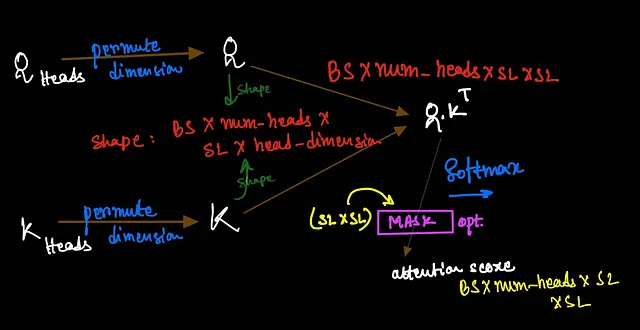 Q Heads
permute
dimension
Q
shape
BS × num-heads × SL × SL
Q.K^T
shape: BS × num-heads ×
SL × head-dimension
shape
K Heads
permute
dimension
K
(SL×SL)
MASK
opt.
Softmax
attention score
BS × num-heads × SL
× SL